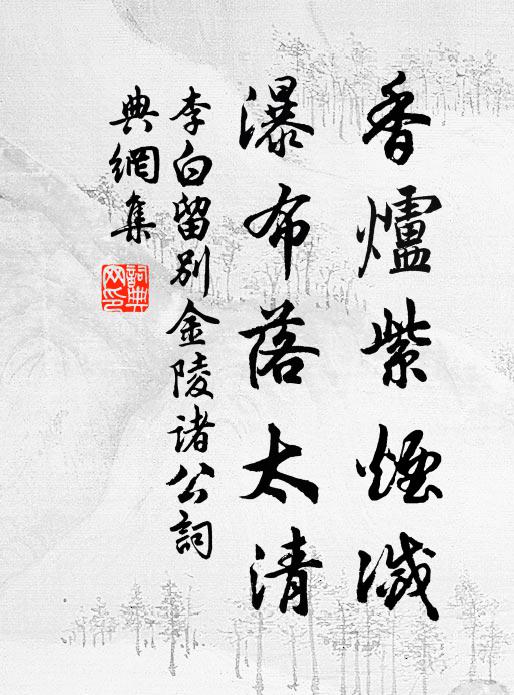 香爐紫煙滅
瀑布落太清
李白留別金陵諸公詞
典網集
詞典網印